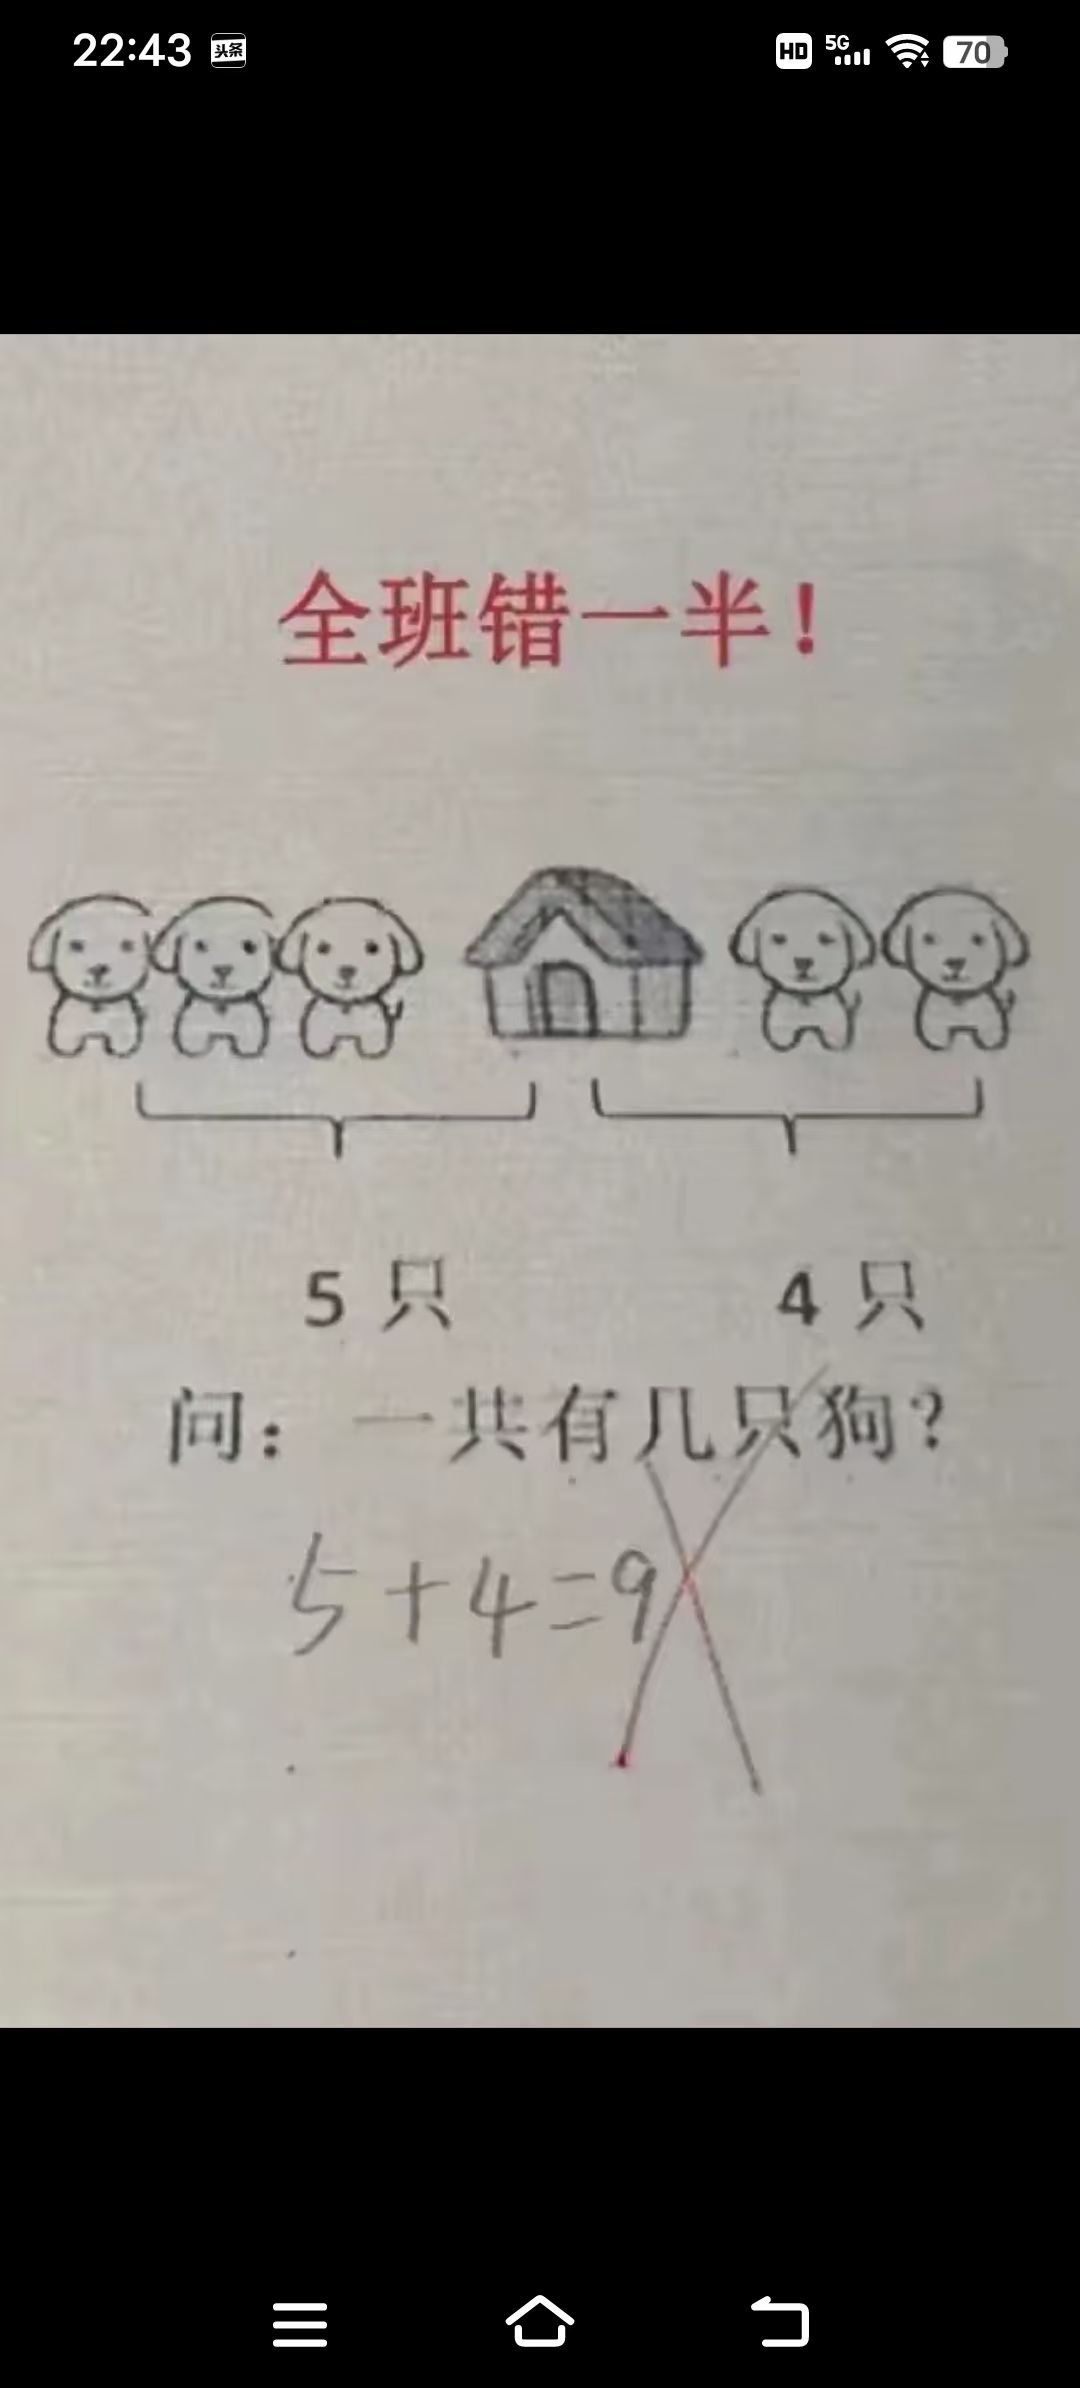 22:43 头条 HD 5G 70
全班错一半！
5 只 4 只
问：一共有几只狗？
5+4=9